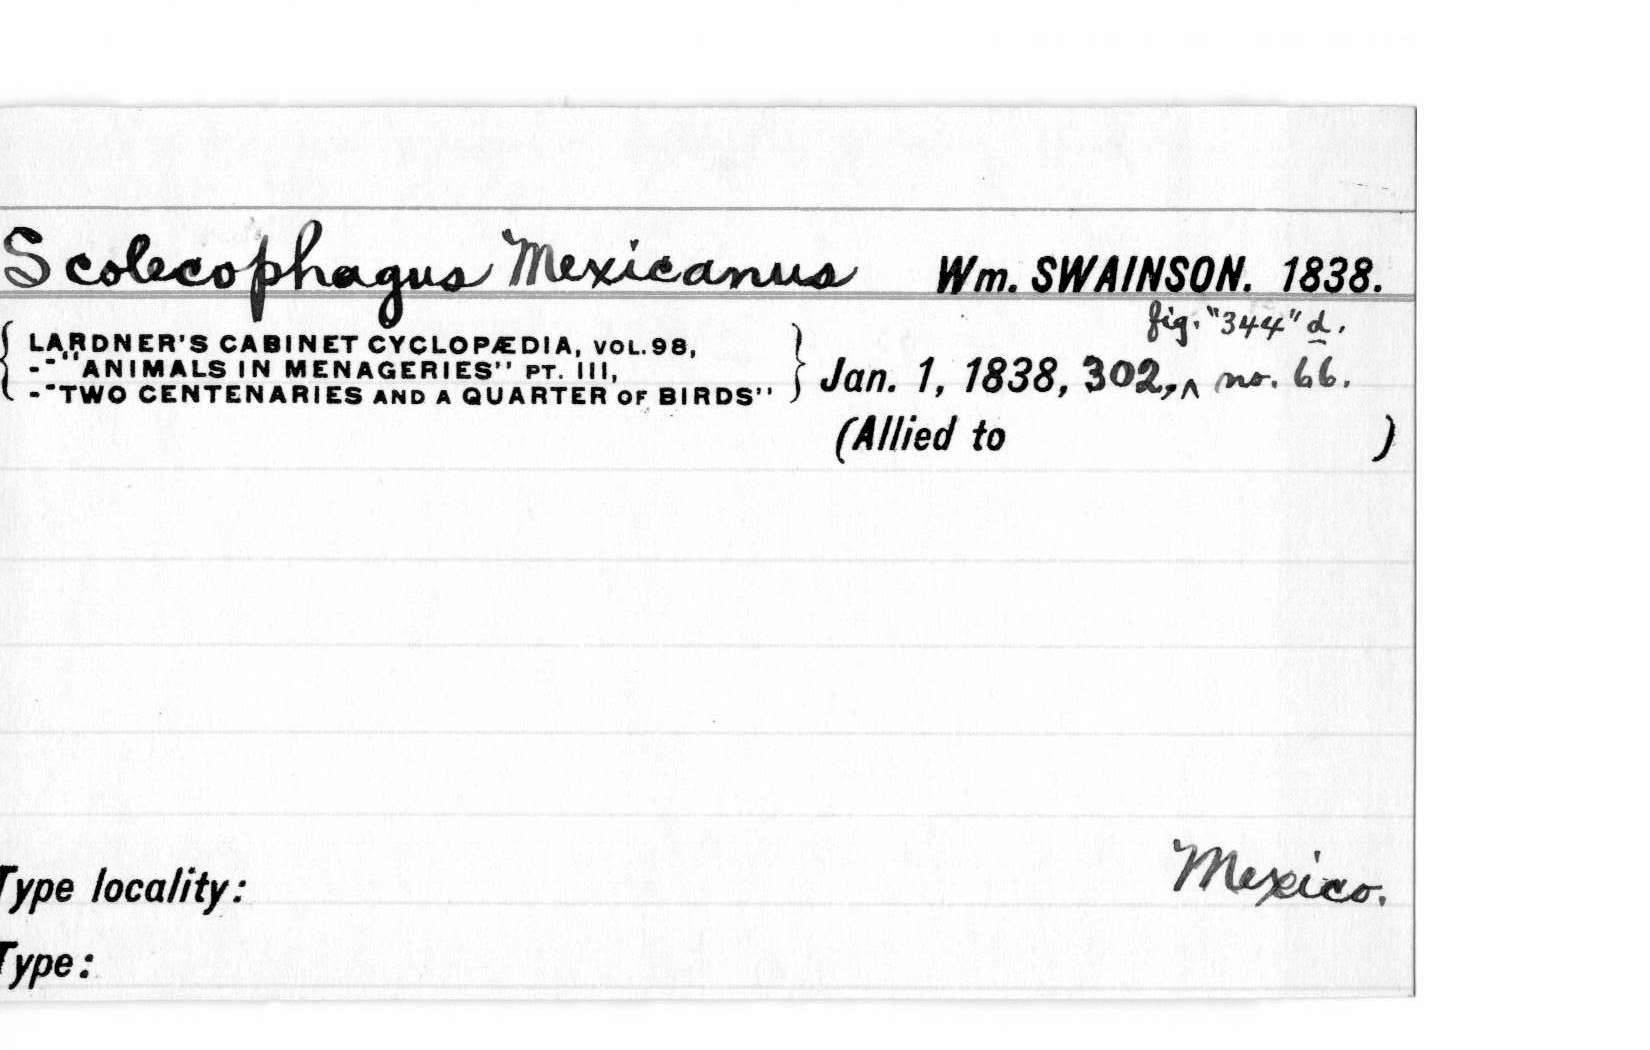 Scolecophagus Mexicanus Wm. SWAINSON. 1838.
fig. "344" d.
{ LARDNER'S CABINET CYCLOPÆDIA, VOL. 98,
-"ANIMALS IN MENAGERIES" PT. III, } Jan. 1, 1838, 302,^ no. 66.
-"TWO CENTENARIES AND A QUARTER OF BIRDS"
(Allied to )
Mexico.
Type locality:
Type: